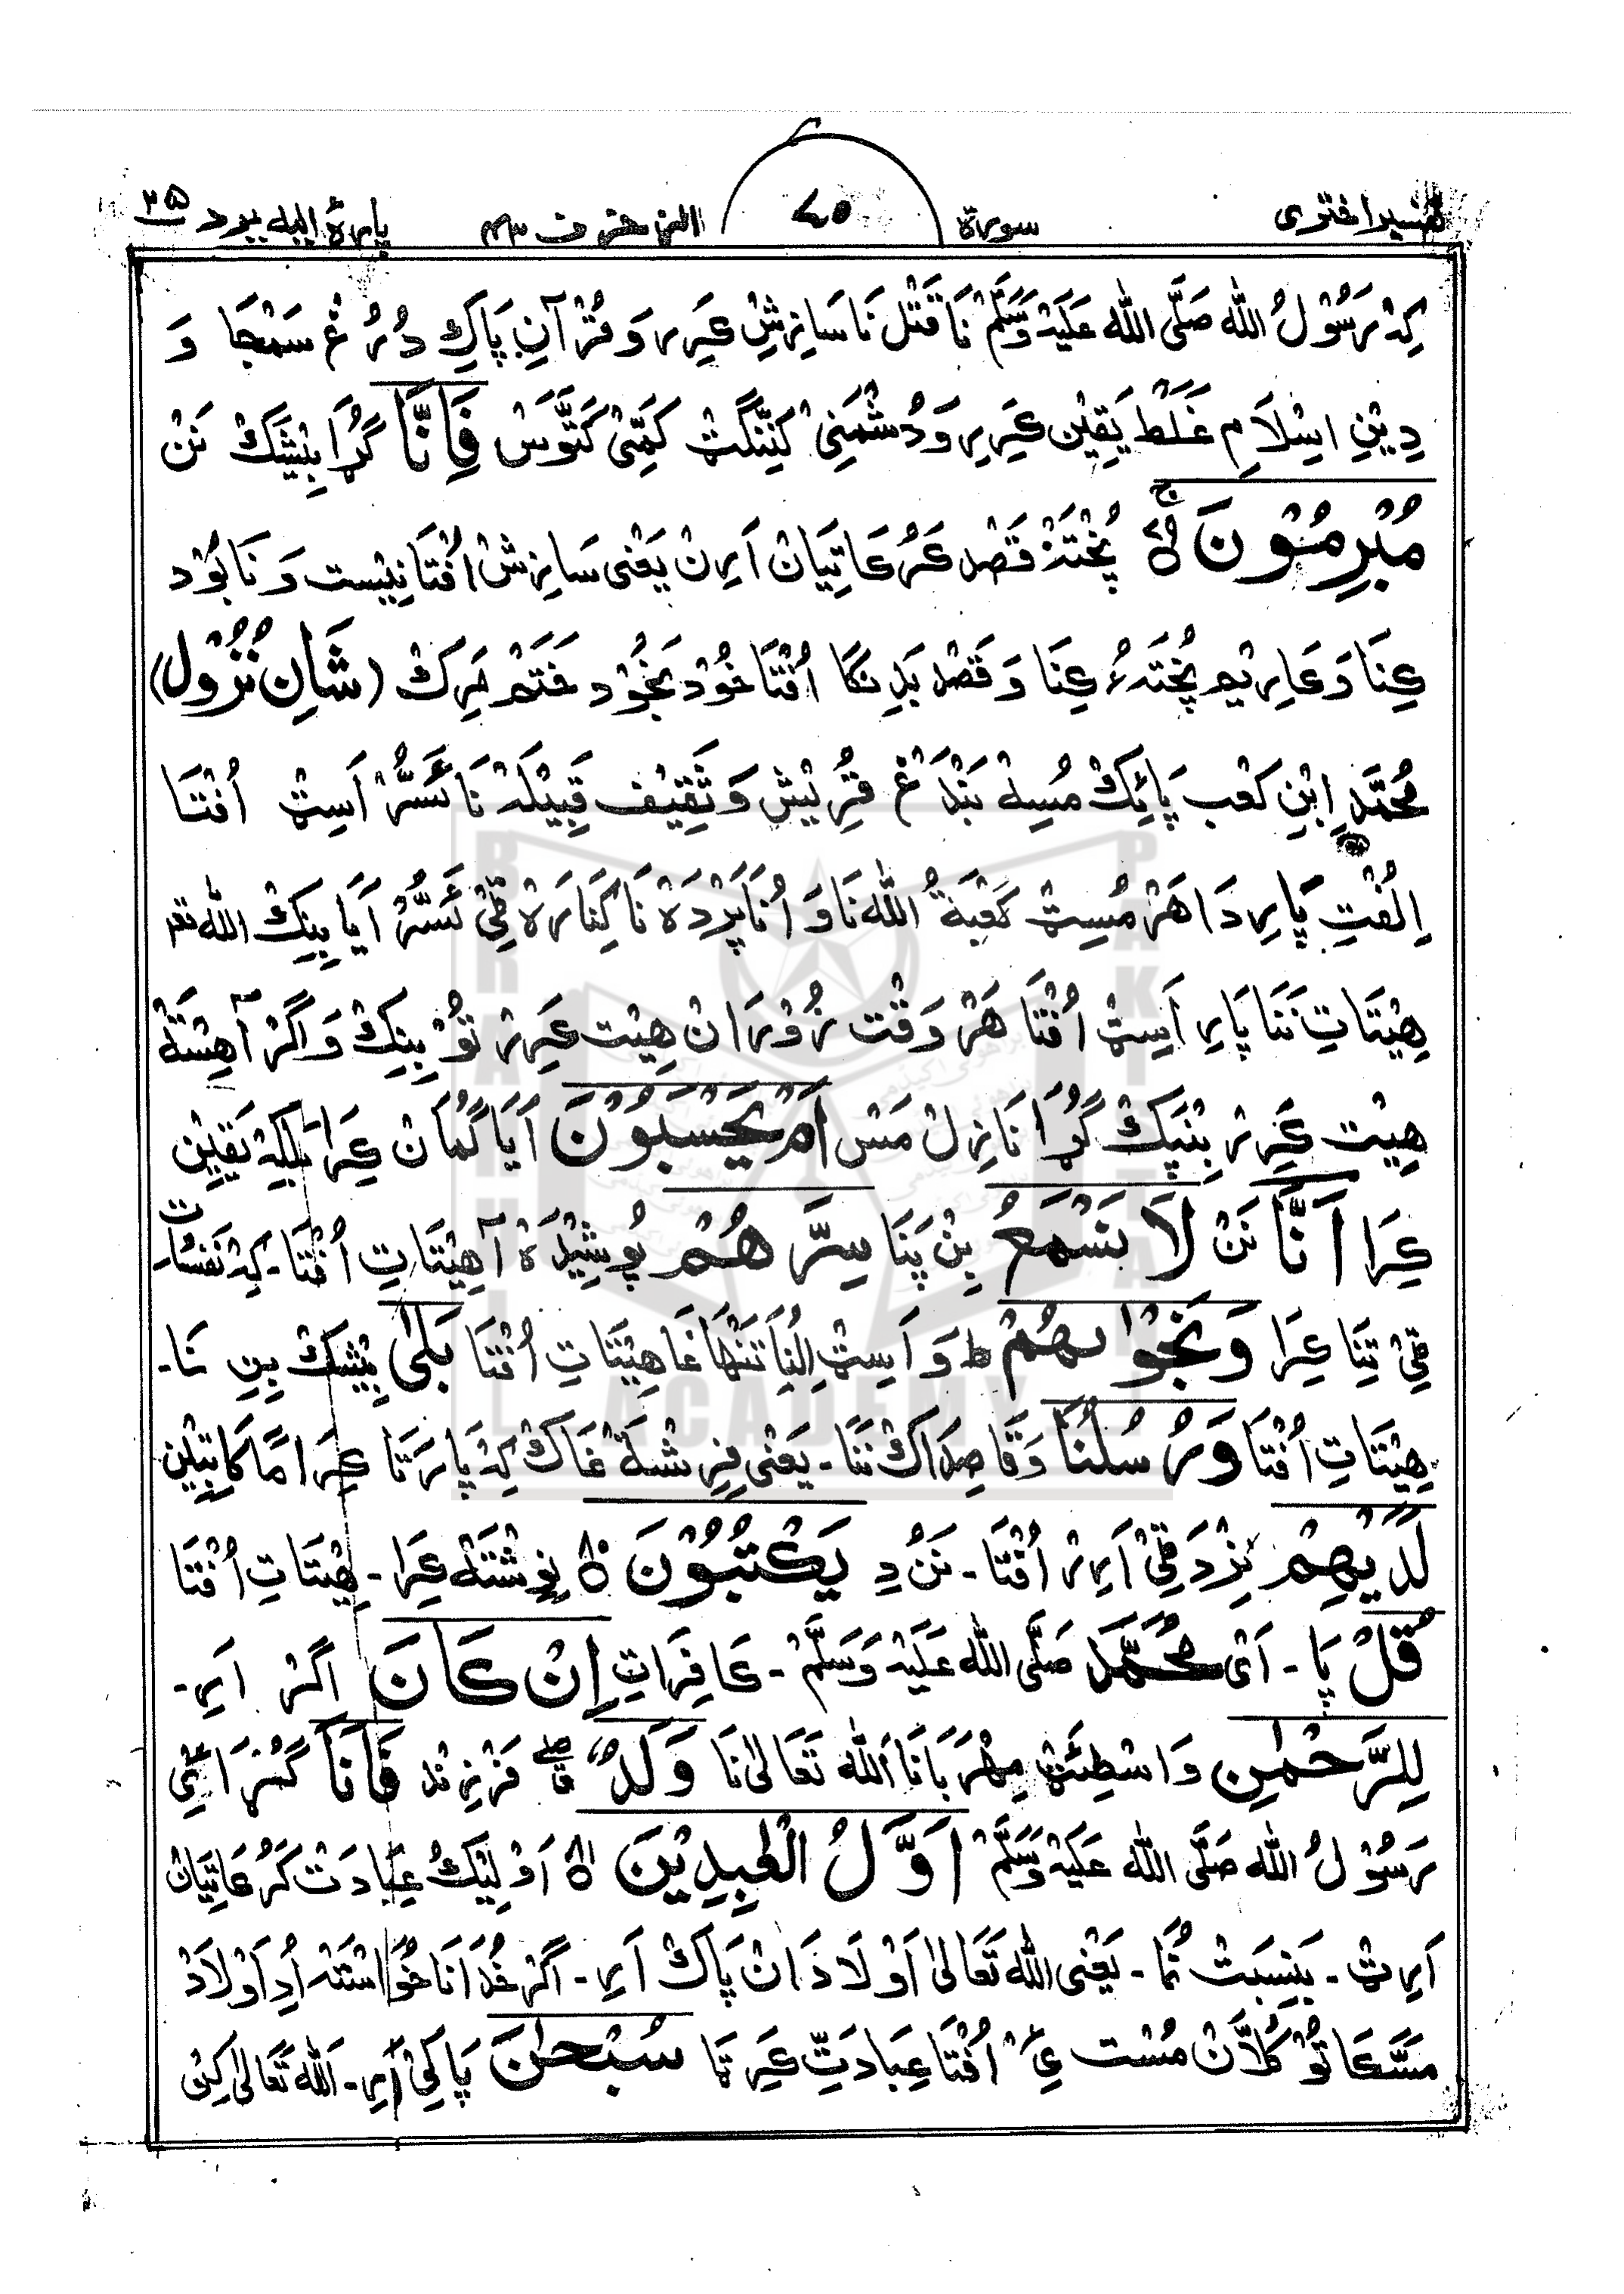 تفسیر اختری سورة ٧٥ الزخرف ٤٣ پارۂ الیه یرد ٢٥
کِہ رَسُوْلُ اللّٰه صَلَّی اللّٰه عَلَیْهِ وَسَلَّمْ نَا قَتْل نَا سَازِشِ کَرِیر وَ قُرْآنِ پَاکِ دُرُغ سَمْجَا وَ
دِیْنِ اِسْلَامِ غَلَط یَقِیْن کَرِیر وَ دُشْمَنِیْ کَنِّنگٹ کَمِّیْ کَتَّوَسْ فَاِنَّا گُڑَا بِیْشَکْ نَنْ
مُبْرِمُوْنَ ٧٩ج پُخْتَہ قَصْد کَرُکَاتِیَانْ اَرِنْ یَعْنی سَازِشْ اُفْتَا نِیْست وَ نَابُوْد
کِنَا وَ کَارِیْم پُخْتَہ کِنَا وَ قَصْد بَدِنکَا اُفْتَا خُوْد بَخُوْد خَتَمْ مَرِکْ (شَانِ نُزُوْل)
مُحَمَّد اِبْنِ کَعْب پَائِکْ مُسِہْ بَنْدَغْ قُرِیْش وَ ثَقِیْف قَبِیْلَہْ نَا ئَسُّرْ اَسِٹْ اُفْتَا
اِلْفْتِ پَارِ دَاهَڑْ مُسِٹ کَعْبَةُ اللّٰه نَا وَ اُنَا پَرْدَہْ نَا کِنَارَہْ قِیْ ئَسُّرْ اَیَا بِنِکْ اللّٰه تعم
هِیْتَاتِ نَنَا پَارِ اَسِٹْ اُفْتَا هَرْ وَقْت زُوْرَانْ هِیْت کَرِرْ تَوُ بِنِکْ وَ اَگَرْ آهِسْتَہْ
هِیْت کَرِرْ بِنْپَکْ گُڑَا نَازِلْ مَسْ اَمْ یَحْسَبُوْنَ اَیَا گُمَانْ کِرَا بَلْکِہْ یَقِیْنِ
کِرَا اَنَّا نَنْ لَا نَسْمَعُ بِنْ پَنَا سِرَّهُمْ پُوشِیْدَہْ آ هِیْتَاتِ اُفْتَا۔ کِہْ نَفْسَاتْ
قِیْ تِنَا کِرَا وَنَجْوٰىهُمْ ط وَ اَسِٹْ اِلُنِا تَنْهَا غَا هِیْتَاتِ اُفْتَا بَلٰی بِیْشَکْ بِنِ نَا۔
هِیْتَاتِ اُفْتَا وَرُسُلُنَا وَ قَاصِدَاکْ نَنَا۔ یَعْنی فِرِشْتَہْ غَاکْ کِہْ پَارَتَا کِرَامًا کَاتِبِیْن
لَدَیْهِمْ نِزْدَ قِیْ اَرِرْ اُفْتَا۔ نَنُ دِ یَکْتُبُوْنَ ٨٠ نِوِشْتَہْ کِرَا۔ هِیْتَاتِ اُفْتَا
قُلْ پَا۔ اَیْ مُحَمَّد صَلَّی اللّٰه عَلَیْهِ وَسَلَّمْ۔ کَافِرَاتِ اِنْ کَانَ اَگَرْ اَرِ۔
لِلرَّحْمٰنِ وَاسْطِئَٹ مِهْرَبَانَا اَللّٰه تَعَالیٰ نَا وَلَدٌ ق صلے فَرْزِنْد فَاَنَا گُڑَا ئِیْ
رَسُوْلُ اللّٰه صَلَّی اللّٰه عَلَیْهِ وَسَلَّمْ اَوَّلُ الْعٰبِدِیْنَ ٨١ اَوْلِیْکُ عِبَادَتْ کَرُکَاتِیَانْ
اَرِٹ۔ بَنِسْبَتْ نُمَا۔ یَعْنی اللّٰه تَعَالیٰ اَوْلَادَانْ پَاکْ اَرِ۔ اَگَرْ خُدَانَا خُوَاسْتَہ اُدِ اَوْلَادْ
مَسَّکَا تَوْ کُلَّانْ مُسْت ئِیْ اُفْتَا عِبَادَتِّ کَرِتَا سُبْحٰنَ پَاکِیْ اَرِ۔ اَللّٰه تَعَالیٰ کِنْ
BRAHUI
ACADEMY
PAKISTAN